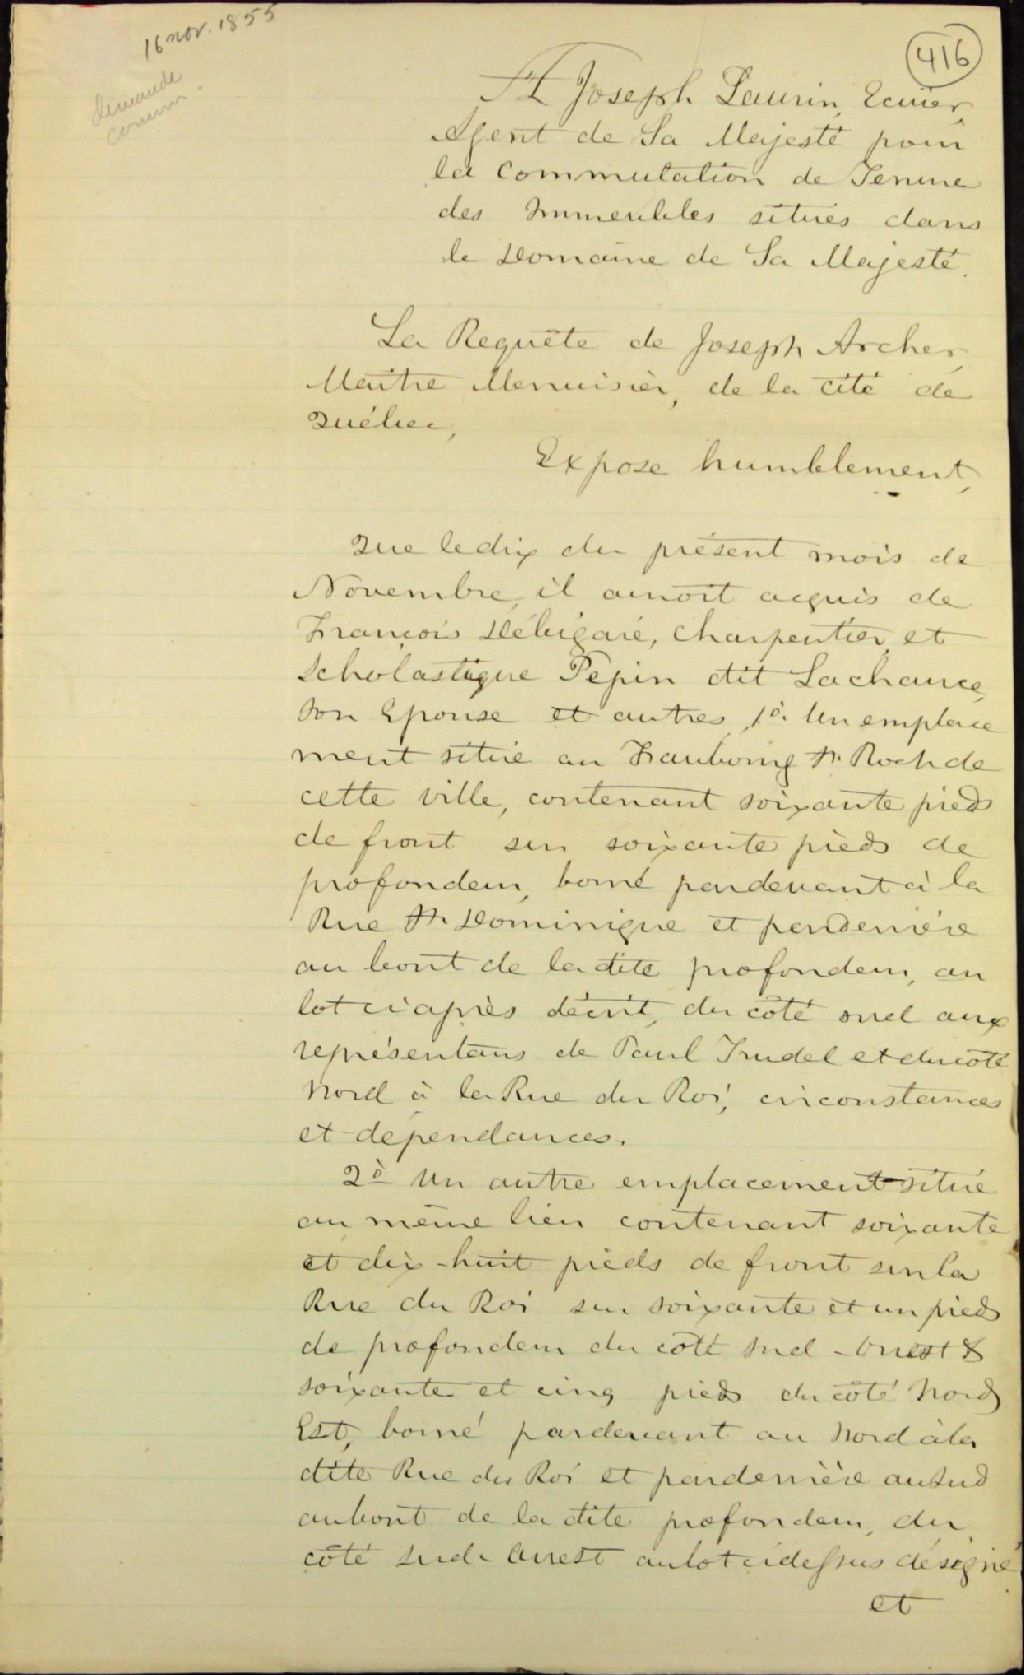 16 nov. 1855
demande
comm.
416
A Joseph Laurin, Ecuier,
Agent de Sa Majesté pour
la Commutation de Tenure
des Immeubles situés dans
le Domaine de Sa Majesté.
La Requête de Joseph Archer,
Maître Menuisier, de la cité de
Québec,
Expose humblement,
Que le dix du présent mois de
Novembre, il auroit acquis de
François Débigaré, Charpentier, et
Scholastique Pepin dit Lachance,
son Epouse et autres, 1º. Un emplace
ment situé au Faubourg St. Roch de
cette ville, contenant soixante pieds
de front sur soixante pieds de
profondeur, borné pardevant à la
Rue St. Dominique et parderrière
au bout de la dite profondeur, au
lot ci après décrit, du côté sud aux
représentans de Paul Trudel et du côté
Nord à la Rue du Roi, circonstances
et dépendances.
2º Un autre emplacement situé
au même lieu contenant soixante
et dix-huit pieds de front sur la
Rue du Roi sur soixante et un pieds
de profondeur du côté Sud-Ouest &
soixante et cinq pieds du côté Nord
Est, borné pardevant au Nord à la
dite Rue du Roi et parderrière au Sud
au bout de la dite profondeur, du
côté Sud-Ouest au lot ci dessus désigné
et